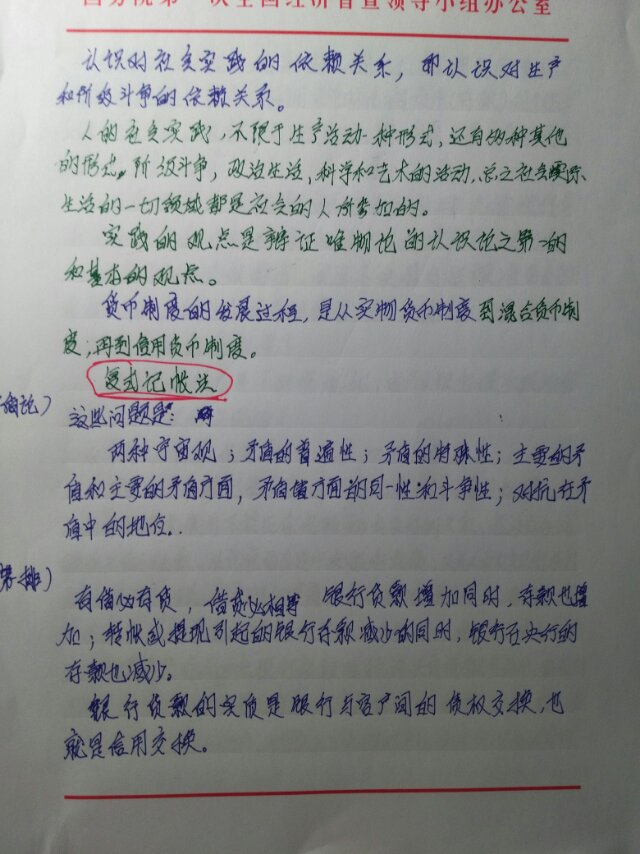 国务院第一次全国经济普查领导小组办公室
认识对社会实践的依赖关系，即认识对生产
和阶级斗争的依赖关系。
人的社会实践，不限于生产活动一种形式，还有多种其他
的形式，阶级斗争，政治生活，科学和艺术的活动，总之社会实际
生活的一切领域都是社会的人所参加的。
实践的观点是辩证唯物论的认识论之第一的
和基本的观点。
货币制度的发展过程，是从实物货币制度到混合货币制
度；再到信用货币制度。
复式记帐法
盾论）
这些问题是：
两种宇宙观；矛盾的普遍性；矛盾的特殊性；主要的矛
盾和主要的矛盾方面，矛盾诸方面的同一性和斗争性；对抗在矛
盾中的地位．
排）
有借必有贷，借贷必相等 银行贷款增加同时，存款也增
加；转帐或提现引起的银行存款减少的同时，银行在央行的
存款也减少。
银行贷款的实质是银行与客户间的债权交换，也
就是信用交换。